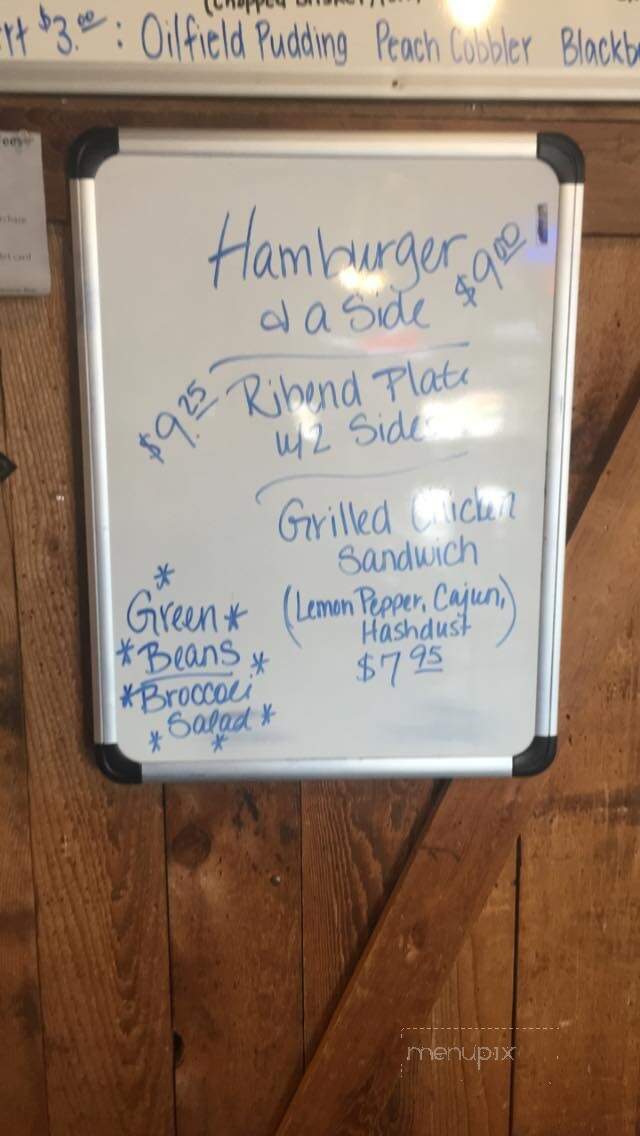 (Chopped
rt $3.00: Oilfield Pudding Peach Cobbler Blackb
Hamburger
& a Side $9.00
$9.25 Ribend Plate
w/2 Sides
Grilled Chicken
Sandwich
(Lemon Pepper, Cajun,
Hashdust)
$7.95
*
Green*
*Beans*
*Broccoli
Salad*
* *
menupix